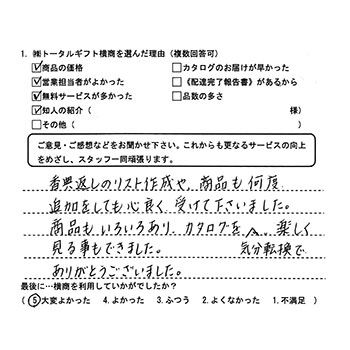 1. ㈱トータルギフト横商を選んだ理由（複数回答可）
☑商品の価格 □カタログのお届けが早かった
☑営業担当者がよかった □《配達完了報告書》があるから
☑無料サービスが多かった □品数の多さ
☑知人の紹介（ 様）
□その他（ ）
ご意見・ご感想などをお聞かせ下さい。これからも更なるサービスの向上
をめざし、スタッフ一同頑張ります。
香典返しのリスト作成や、商品も何度
追加をしても心良く受けて下さいました。
商品もいろいろあり、カタログを 楽しく
見る事もできました。 気分転換で
ありがとうございました。
最後に…横商を利用していかがでしたか？
（ ⑤大変よかった 4.よかった 3.ふつう 2.よくなかった 1.不満足 ）